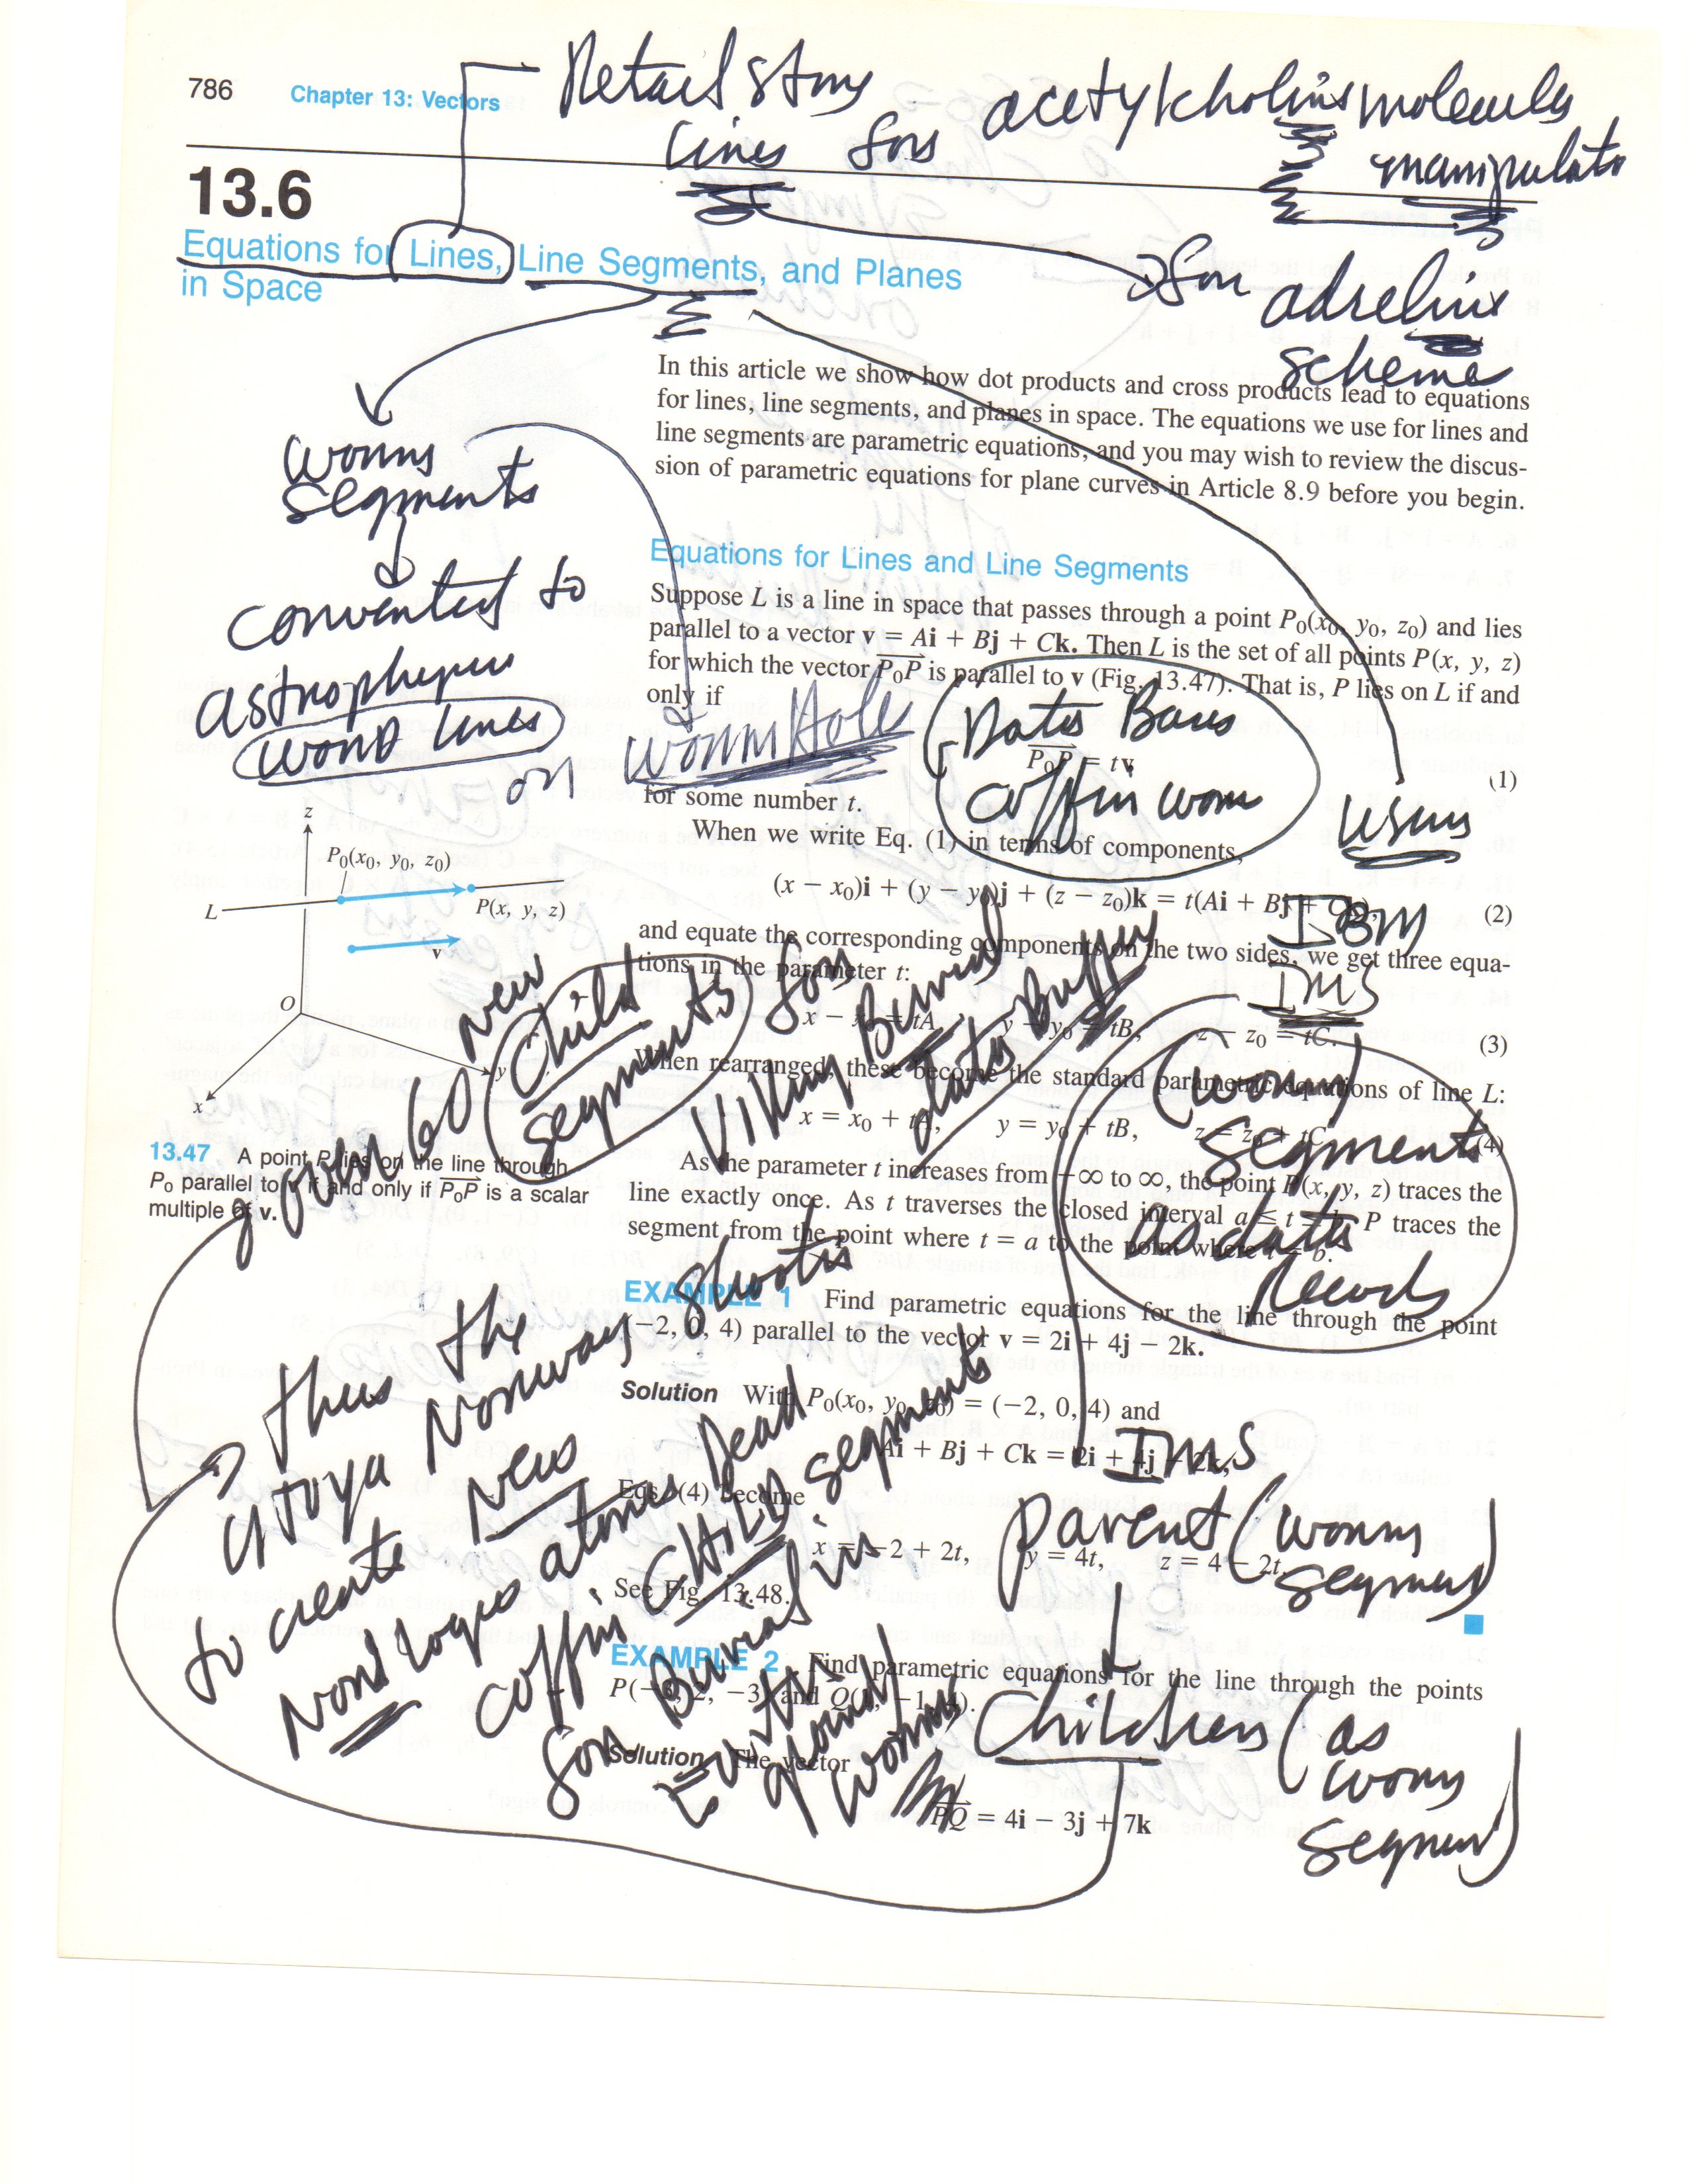 786 Chapter 13: Vectors
Retail store
lines for acetylcholine molecules
manipulato
13.6
Equations for Lines, Line Segments, and Planes
in Space
for adreline
scheme
In this article we show how dot products and cross products lead to equations
for lines, line segments, and planes in space. The equations we use for lines and
line segments are parametric equations, and you may wish to review the discus-
sion of parametric equations for plane curves in Article 8.9 before you begin.
worms
segments
converted to
word lines
on worm Holes
Equations for Lines and Line Segments
Suppose L is a line in space that passes through a point P₀(x₀, y₀, z₀) and lies
parallel to a vector v = Ai + Bj + Ck. Then L is the set of all points P(x, y, z)
for which the vector P₀P is parallel to v (Fig. 13.47). That is, P lies on L if and
only if
P₀P = tv (1)
Coffin worm
for some number t.
When we write Eq. (1) in terms of components,
(x − x₀)i + (y − y₀)j + (z − z₀)k = t(Ai + Bj + Ck), (2)
IBM
IMS
and equate the corresponding components on the two sides, we get three equa-
tions in the parameter t:
x − x₀ = tA, y − y₀ = tB, z − z₀ = tC. (3)
When rearranged, these become the standard parametric equations of line L:
x = x₀ + tA, y = y₀ + tB, z = z₀ + tC. (4)
(worm)
segments
as data
Records
As the parameter t increases from −∞ to ∞, the point P(x, y, z) traces the
line exactly once. As t traverses the closed interval a ≤ t ≤ b, P traces the
segment from the point where t = a to the point where t = b.
z
P₀(x₀, y₀, z₀)
L
P(x, y, z)
v
O
y
x
13.47 A point P lies on the line through
P₀ parallel to v if and only if P₀P is a scalar
multiple of v.
given 60 new
Child
segments for
Viking Burial
data Buffer
EXAMPLE 1 Find parametric equations for the line through the point
(−2, 0, 4) parallel to the vector v = 2i + 4j − 2k.
Solution With P₀(x₀, y₀, z₀) = (−2, 0, 4) and
Ai + Bj + Ck = 2i + 4j − 2k,
Eqs. (4) become
x = −2 + 2t, y = 4t, z = 4 − 2t.
See Fig. 13.48.
IMS
parent (worm
segment)
Children (as
worm
segment)
thus the
Utoya Norway shoots
to create New
Nord logic atoms Dead
coffin CHILD segments
for Burial in
ground
worms
EXAMPLE 2 Find parametric equations for the line through the points
Solution The vector
PQ = 4i − 3j + 7k